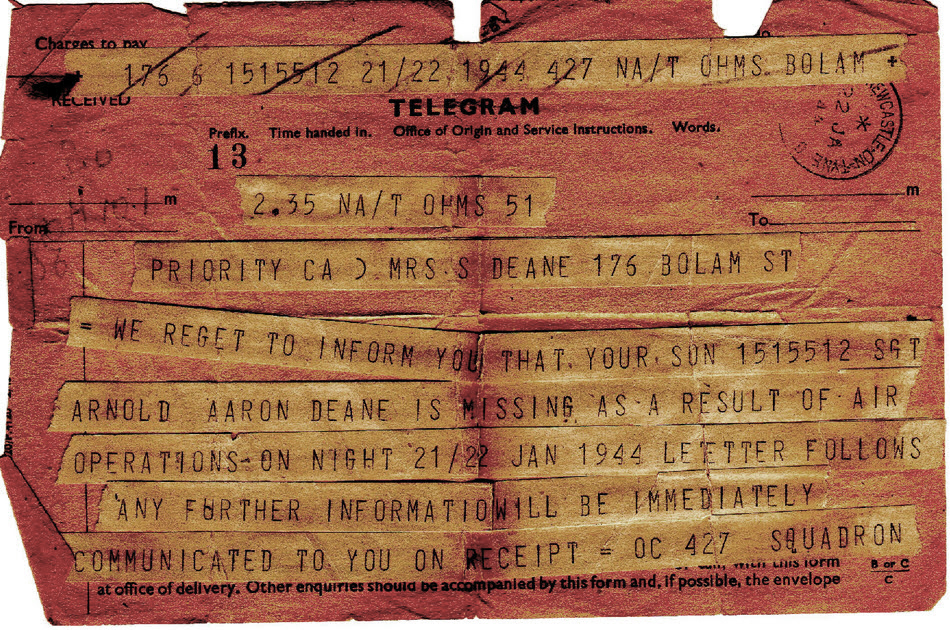 Charges to pay
+ 176 6 1515512 21/22 1944 427 NA/T OHMS BOLAM +
RECEIVED
TELEGRAM
Prefix. Time handed in. Office of Origin and Service Instructions. Words.
13
NEWCASTLE-ON-TYNE
22 JA
44
m
m
2.35 NA/T OHMS 51
From
To
PRIORITY CA MRS S DEANE 176 BOLAM ST
= WE REGET TO INFORM YOU THAT YOUR SON 1515512 SGT
ARNOLD AARON DEANE IS MISSING AS A RESULT OF AIR
OPERATIONS ON NIGHT 21/22 JAN 1944 LEETTER FOLLOWS
ANY FURTHER INFORMATIOWILL BE IMMEDIATELY
COMMUNICATED TO YOU ON RECEIPT = OC 427 SQUADRON
with this form
B or C
at office of delivery. Other enquiries should be accompanied by this form and, if possible, the envelope
C